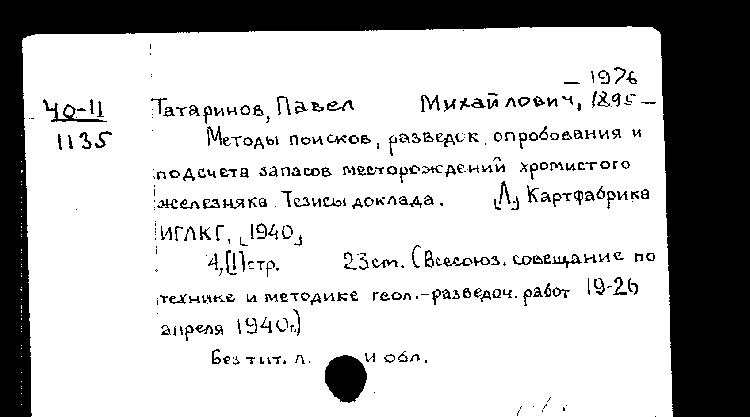 – 1976
40-11 Татаринов, Павел Михайлович, 1895 –
1135 Методы поисков, разведок, опробования и
подсчета запасов месторождений хромистого
железняка. Тезисы доклада. [Л] Картфабрика
ИГЛКГ, [1940]
4,[1]стр. 23cm. (Всесоюз. совещание по
технике и методике геол.-разведоч. работ 19-26
апреля 1940г.)
Без тит. л. и обл.